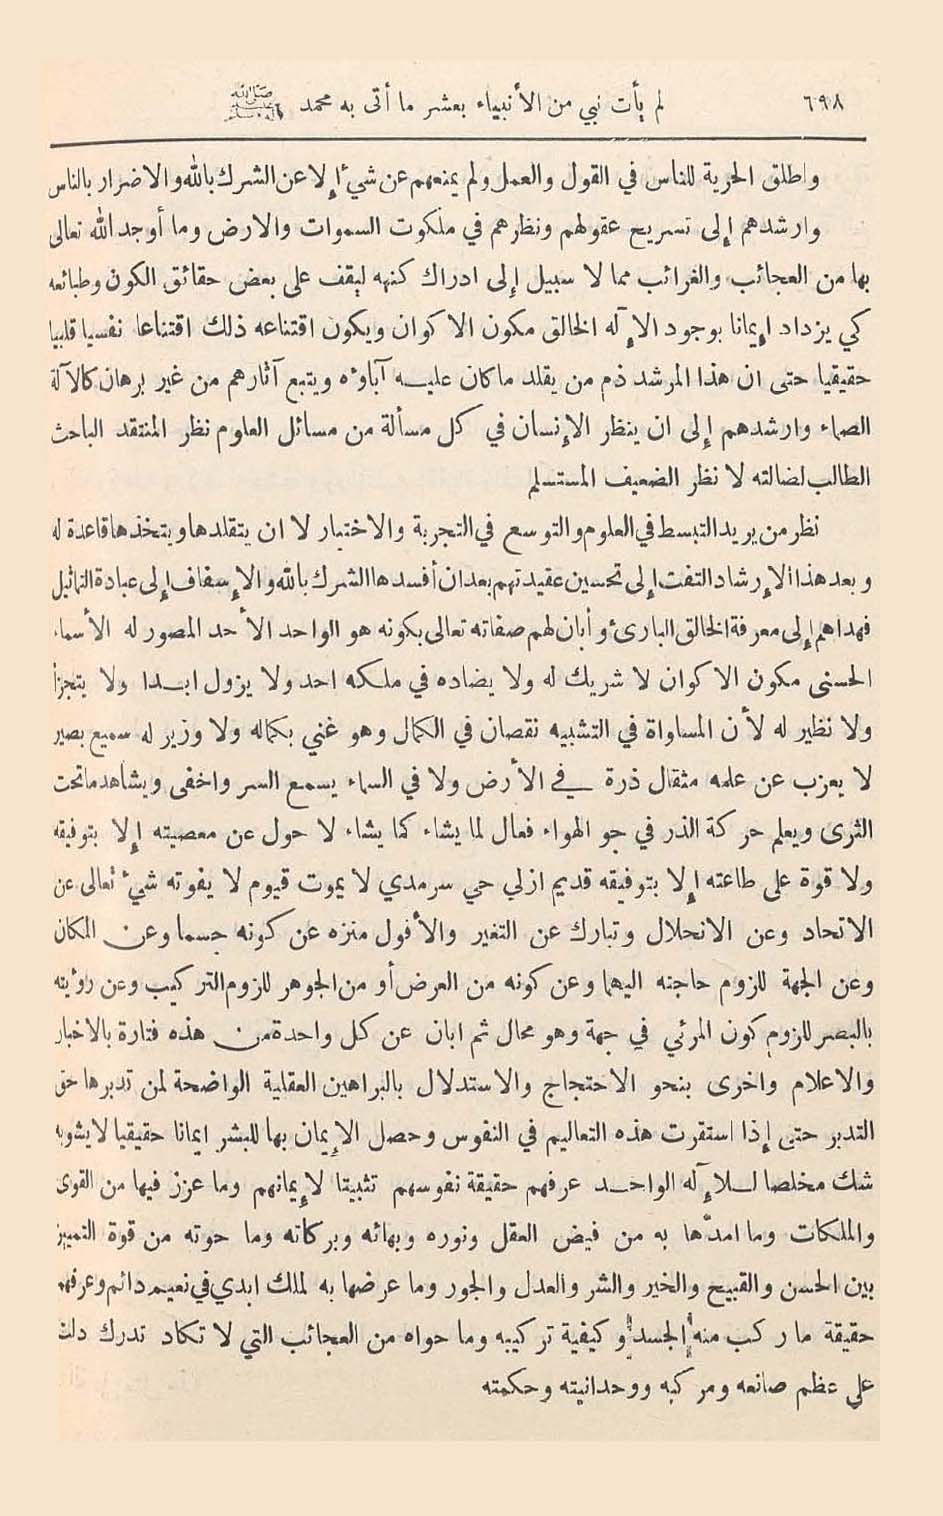 ٦٩٨
لم يأت نبي من الأنبياء بعشر ما أتى به محمد ﷺ
واطلق الحرية للناس في القول والعمل ولم يمنعهم عن شيء إلا عن الشرك بالله والاضرار بالناس
وارشدهم إلى تسريح عقولهم ونظرهم في ملكوت السموات والارض وما أوجد الله تعالى
بها من العجائب والغرائب مما لا سبيل إلى ادراك كنهه ليقف على بعض حقائق الكون وطبائعه
كي يزداد إيمانا بوجود الإله الخالق مكون الاكوان ويكون اقتناعه ذلك اقتناعا نفسيا قلبيا
حقيقيا حتى ان هذا المرشد ذم من يقلد ما كان عليه آباؤه ويتبع آثارهم من غير برهان كالآلة
الصماء وارشدهم إلى ان ينظر الإنسان في كل مسألة من مسائل العلوم نظر المنتقد الباحث
الطالب لضالته لا نظر الضعيف المستسلم
نظر من يريد التبسط في العلوم والتوسع في التجربة والاختبار لا ان يتقلدها ويتخذها قاعدة له
وبعد هذا الإرشاد التفت إلى تحسين عقيدتهم بعد ان أفسدها الشرك بالله والإسفاف إلى عبادة التماثيل
فهداهم إلى معرفة الخالق البارئ وأبان لهم صفاته تعالى بكونه هو الواحد الأحد المصور له الأسماء
الحسنى مكون الاكوان لا شريك له ولا يضاده في ملكه احد ولا يزول ابدا ولا يتجزأ
ولا نظير له لأن المساواة في التشبيه نقصان في الكمال وهو غني بكماله ولا وزير له سميع بصير
لا يعزب عن علمه مثقال ذرة في الأرض ولا في السماء يسمع السر واخفى ويشاهد ما تحت
الثرى ويعلم حركة الذر في جو الهواء فعال لما يشاء كما يشاء لا حول عن معصيته إلا بتوفيقه
ولا قوة على طاعته إلا بتوفيقه قديم ازلي حي سرمدي لا يموت قيوم لا يفوته شيء تعالى عن
الاتحاد وعن الانحلال وتبارك عن التغير والأفول منزه عن كونه جسما وعن المكان
وعن الجهة للزوم حاجته اليهما وعن كونه من العرض أو من الجوهر للزوم التركيب وعن رؤيته
بالبصر للزوم كون المرئي في جهة وهو محال ثم ابان عن كل واحدة من هذه فتارة بالاخبار
والاعلام واخرى بنحو الاحتجاج والاستدلال بالبراهين العقلية الواضحة لمن تدبرها حق
التدبر حتى إذا استقرت هذه التعاليم في النفوس وحصل الإيمان بها للبشر ايمانا حقيقيا لا يشوبه
شك مخلصا للإله الواحد عرفهم حقيقة نفوسهم تثبيتا لإيمانهم وما عزز فيها من القوى
والملكات وما امدّها به من فيض العقل ونوره وبهائه وبركاته وما حوته من قوة التمييز
بين الحسن والقبيح والخير والشر والعدل والجور وما عرضها به لملك ابدي في نعيم دائم وعرفهم
حقيقة ما ركب منه الجسد وكيفية تركيبه وما حواه من العجائب التي لا تكاد تدرك دلت
على عظم صانعه ومركبه ووحدانيته وحكمته